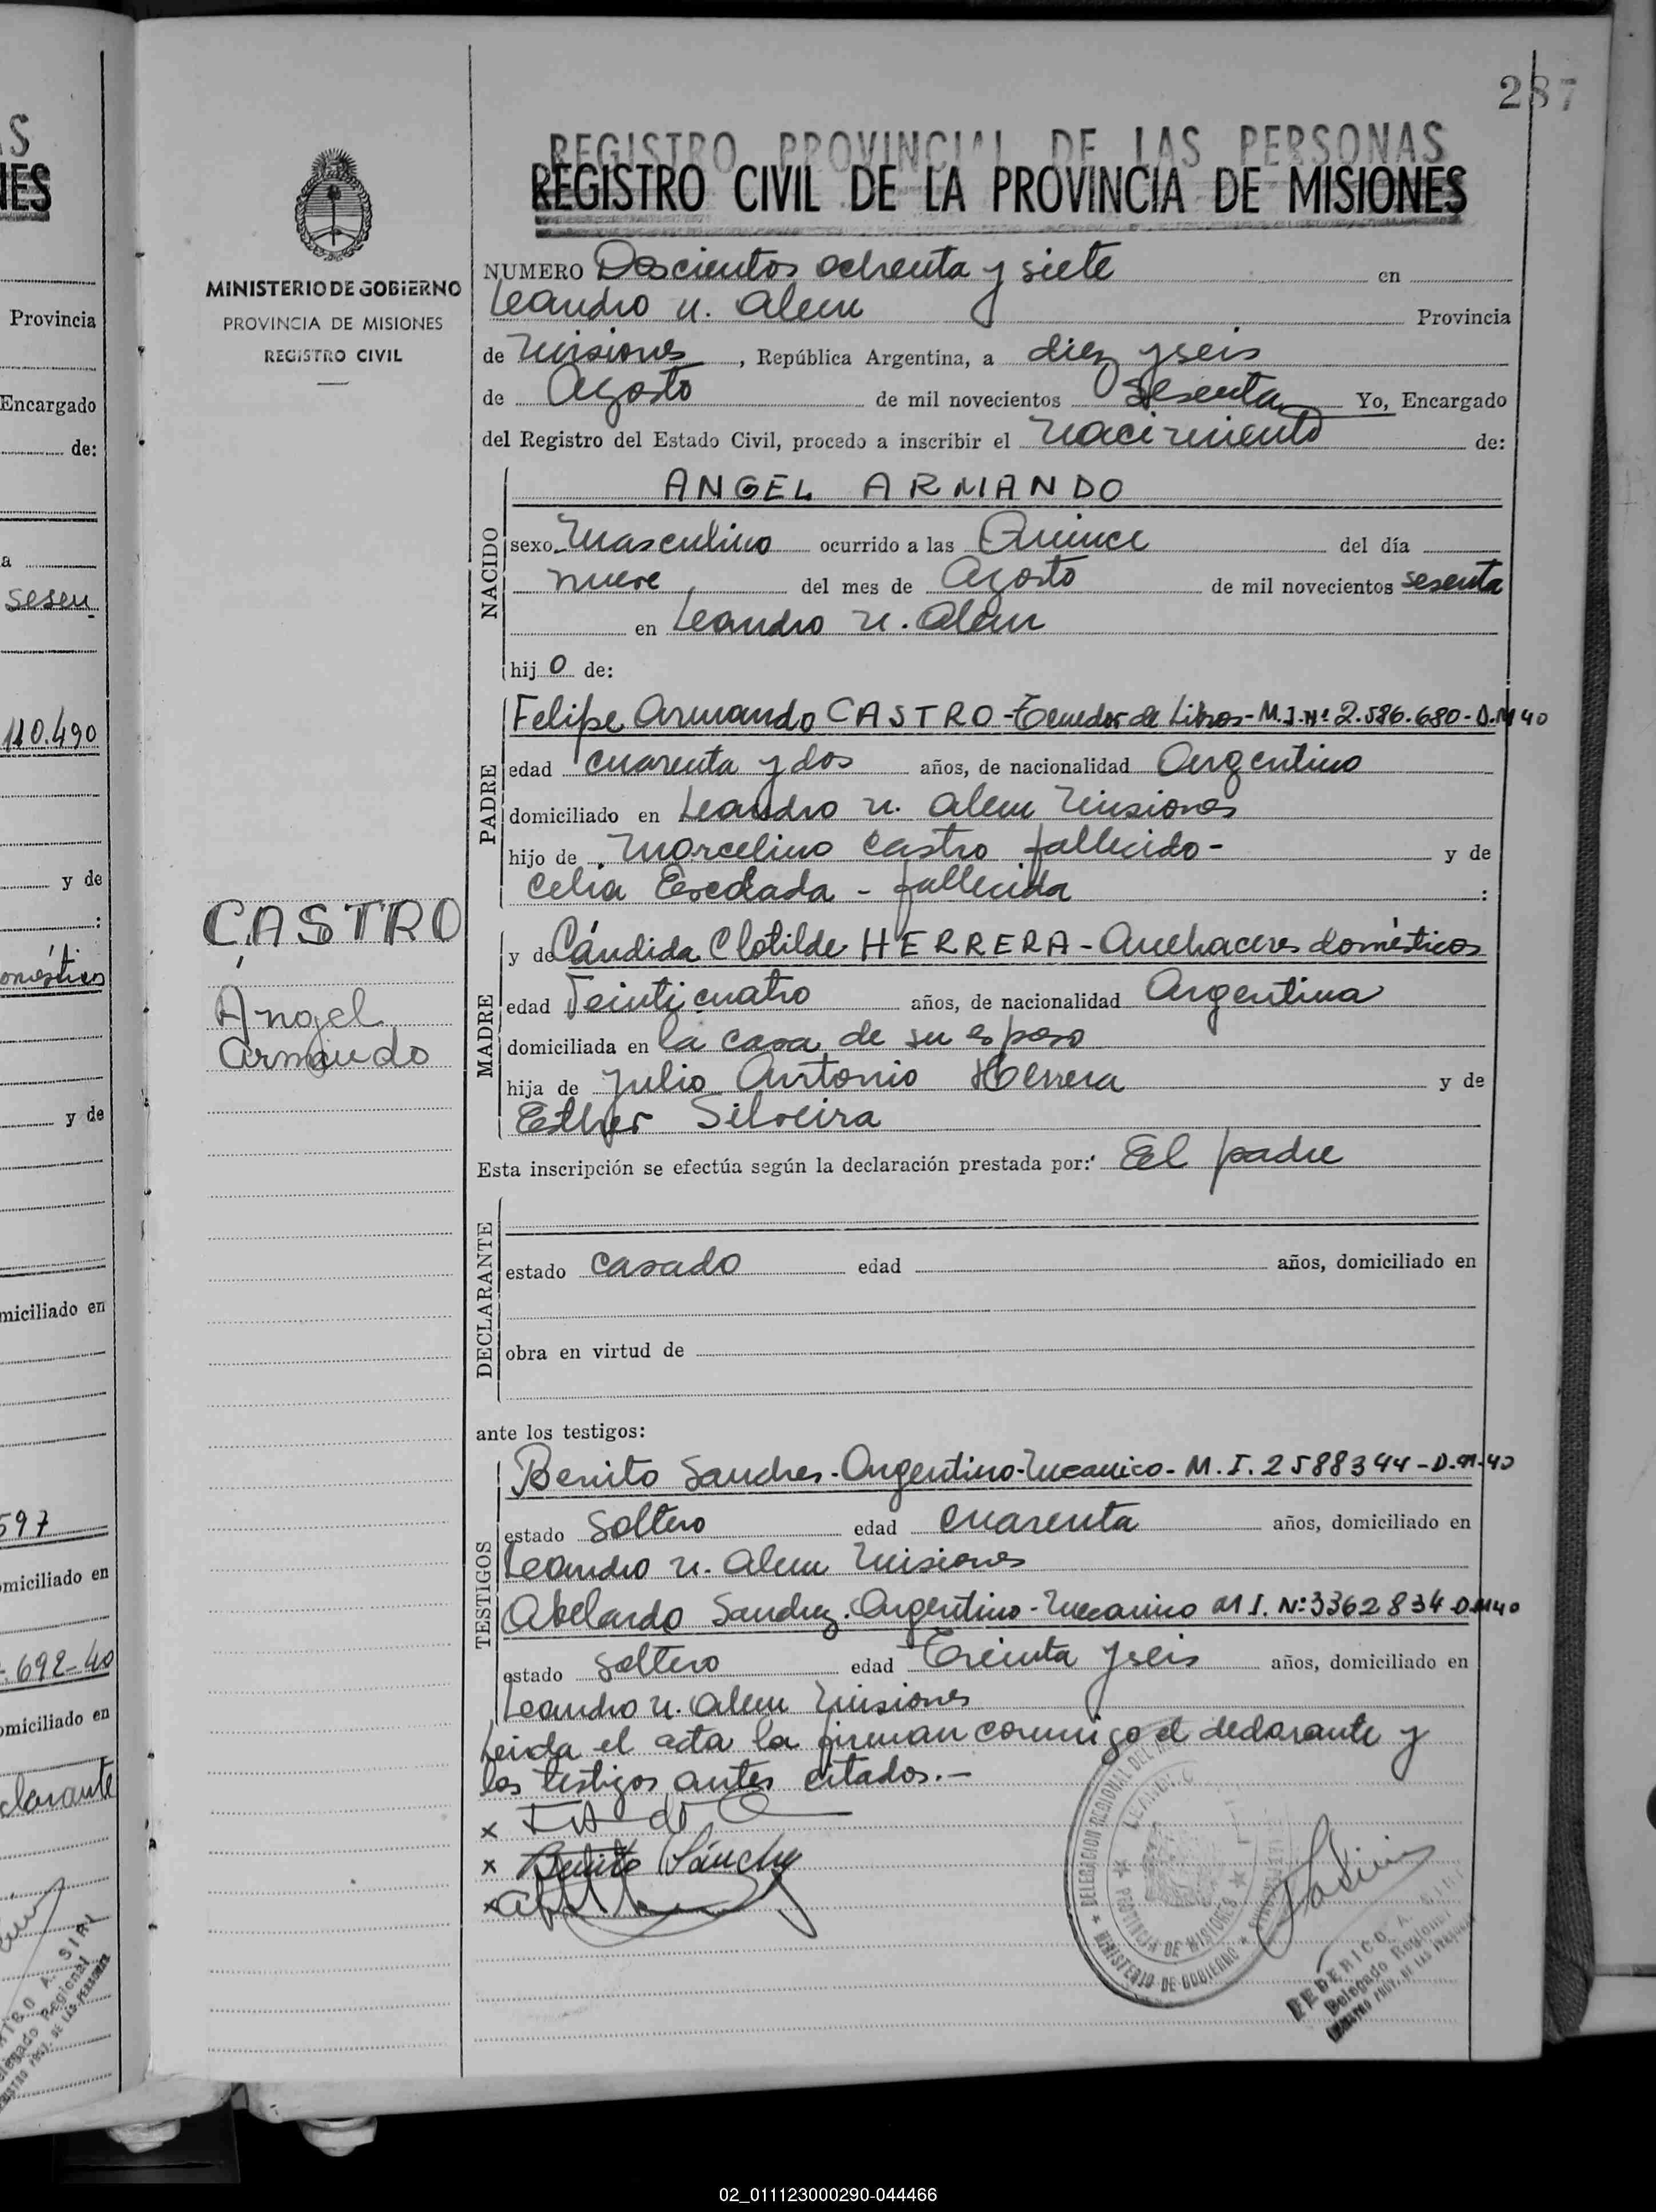 S
NES
Provincia
Encargado
de:
a
sesen
110.490
y de
:
omésticos
y de
miciliado en
597
omiciliado en
.692-40
omiciliado en
clarante
287
MINISTERIO DE GOBIERNO
PROVINCIA DE MISIONES
REGISTRO CIVIL
CASTRO
Angel
Armando
REGISTRO PROVINCIAL DE LAS PERSONAS
REGISTRO CIVIL DE LA PROVINCIA DE MISIONES
NUMERO Doscientos ochenta y siete en
Leandro N. Alem Provincia
de Misiones, República Argentina, a diez y seis
de Agosto de mil novecientos Sesenta Yo, Encargado
del Registro del Estado Civil, procedo a inscribir el Nacimiento de:
NACIDO
ANGEL ARMANDO
sexo Masculino ocurrido a las Quince del día
nueve del mes de Agosto de mil novecientos sesenta
en Leandro N. Alem
hijo de:
PADRE
Felipe Armando CASTRO - Tenedor de Libros - M.I. Nº 2.586.680 - D.M 40
edad cuarenta y dos años, de nacionalidad Argentino
domiciliado en Leandro N. Alem Misiones
hijo de Marcelino Castro fallecido - y de
Celia Escolada - fallecida :
MADRE
y de Cándida Clotilde HERRERA - Quehaceres domésticos
edad Veinticuatro años, de nacionalidad Argentina
domiciliada en la casa de su esposo
hija de Julio Antonio Herrera y de
Esther Silveira
Esta inscripción se efectúa según la declaración prestada por: El padre
DECLARANTE
estado casado edad años, domiciliado en
obra en virtud de
ante los testigos:
TESTIGOS
Benito Sanches - Argentino - Mecanico - M.I. 2588344 - D.M. 40
estado Soltero edad cuarenta años, domiciliado en
Leandro N. Alem Misiones
Abelardo Sanchez. Argentino - Mecanico M I. Nº 3362834 D.M 40
estado Soltero edad Treinta y seis años, domiciliado en
Leandro N. Alem Misiones
Leida el acta la firman conmigo el declarante y
los testigos antes citados. -
x
x Benito Sánchez
x
DELEGACION REGIONAL DEL
LEANDRO
PROVINCIA DE MISIONES
MINISTERIO DE GOBIERNO
FEDERICO A.
Delegado Regional
REGISTRO PROV. DE LAS PERSONAS
02_011123000290-044466